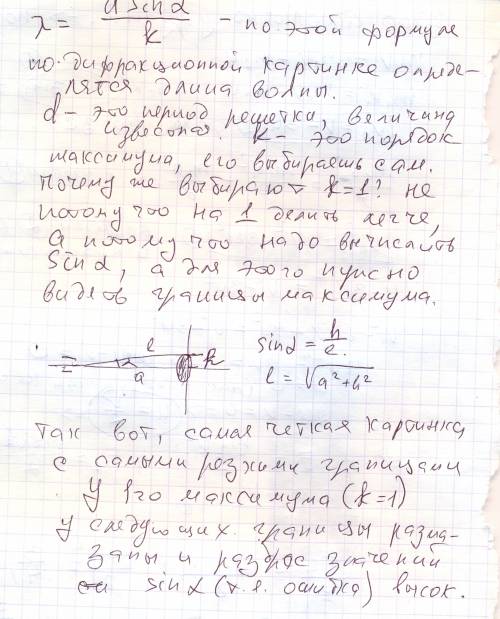 λ = d sinα / k – по этой формуле
по дифракционной картинке опреде-
лятся длина волны.
d – это период решетки, величина
известная. k – это порядок
максимума, его выбираешь сам.
Почему же выбирают k=1? не
потому что на 1 делить легче,
а потому что надо вычислить
sinα, а для этого нужно
видеть границы максимума.
l
α
a
h
sinα = h/l
l = √a²+h²
Так вот, самая четкая картинка
с самыми резкими границами
у 1го максимума (k=1)
у следующих границы разма-
заны и разброс значений
sinα (т.е. ошибка) высок.